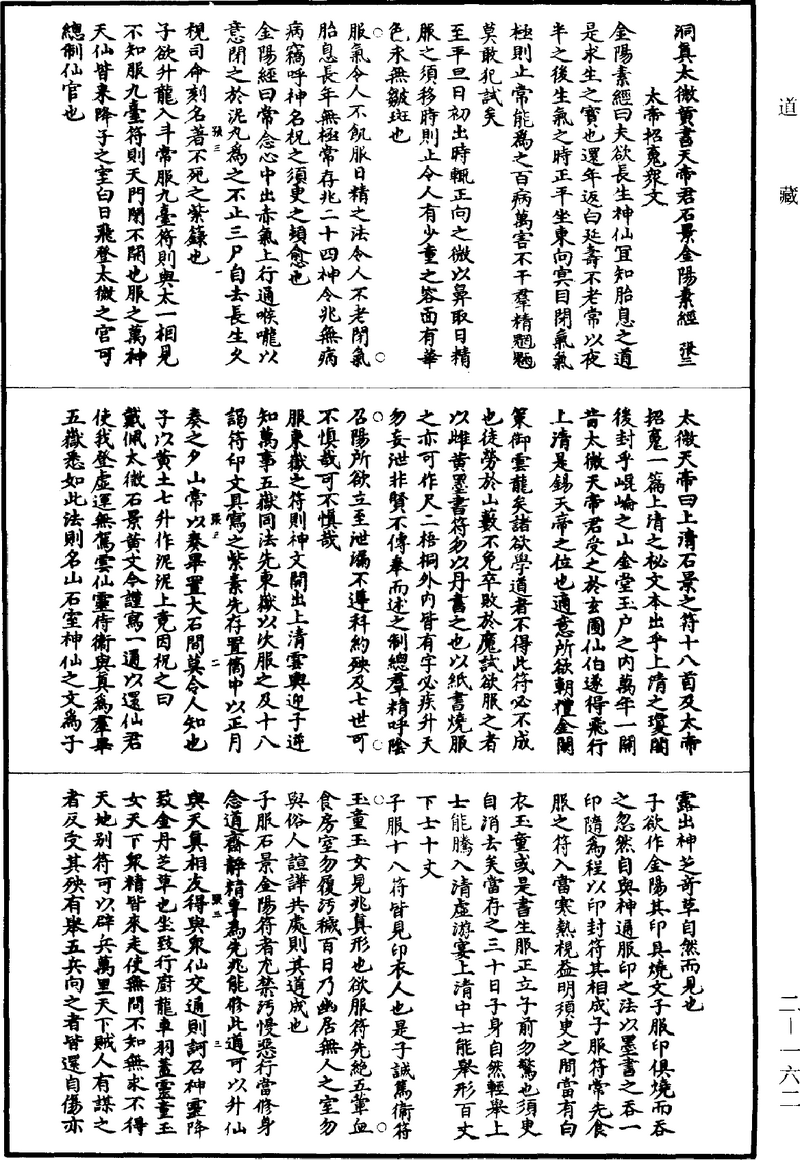 道藏
洞真太微黃書天帝君石景金陽素經　張二
太帝招魂眾文
金陽素經曰夫欲長生神仙宜知胎息之道
是求生之寶也還年返白延壽不老常以夜
半之後生氣之時正平坐東向冥目閉氣氣
極則止常能為之百病萬害不干羣精魍魎
莫敢犯試矣
至平旦日初出時輒正向之微以鼻取日精
服之須移時則止令人有少童之容面有華
色永無皺斑也
服氣令人不飢服日精之法令人不老閉氣
胎息長年無極常存兆二十四神令兆無病
病竊呼神名祝之須臾之頃愈也
金陽經曰常念心中出赤氣上行通喉嚨以
意閉之於泥丸為之不止三尸自去長生久
視司命刻名著不死之紫籙也
張二
一
子欲升龍入斗常服九臺符則與太一相見
不知服九臺符則天門閉不開也服之萬神
天仙皆來降子之室白日飛登太微之宮可
總制仙官也
太微天帝曰上清石景之符十八首及太帝
招魂一篇上清之秘文本出乎上清之瓊闕
後封乎崐崘之山金堂玉户之内萬年一開
昔太微天帝君受之於玄圃仙伯遂得飛行
上清是錫天帝之位也適意所欲朝禮金闕
策御雲龍矣諸欲學道者不得此符必不成
也徒勞於山藪不免卒敗於魔試欲服之者
以雌黃墨書符勿以丹書之也以紙書燒服
之亦可作尺二梧桐外内皆有字必疾升天
勿妄泄非賢不傳奉而述之制總羣精呼陰
召陽所欲立至泄漏不遵科約殃及七世可
不慎哉可不慎哉
服東嶽之符則神文開出上清雲輿迎子逆
知萬事五嶽同法先東嶽以次服之及十八
謁符印文具寫之紫素先存置笥中以正月
奏之夕山常以奏畢置大石間莫令人知也
張二
二
子以黃土七升作泥泥上竟因祝之曰
戴佩太微石景黃文令謹寫一通以還仙君
使我登虛運無駕雲仙靈侍衛與真為羣畢
五嶽悉如此法則名山石室神仙之文為子
露出神芝奇草自然而見也
子欲作金陽其印具燒文子服印俱燒而吞
之忽然自與神通服印之法以墨書之吞一
印隨為程以印封符其相成子服符常先食
服之符入當寒熱視益明須臾之間當有白
衣玉童或是書生服正立子前勿驚也須臾
自消去矣當存之三十日子身自然輕舉上
士能騰入清虛游宴上清中士能舉形百丈
下士十丈
子服十八符皆見印衣人也是子誠篤衛符
玉童玉女見兆真形也欲服符先絶五葷血
食房室勿復污穢百日乃幽居無人之室勿
與俗人諠譁共處則其道成也
子服石景金陽符者尤禁污慢惡行當修身
念道齋靜精專為先兆能修此道可以升仙
張二
三
與天真相友得與眾仙交通則訶召神靈降
致金丹芝草也坐致行廚龍車羽蓋靈童玉
女天下眾精皆來走使無問不知無求不得
天地别符可以辟兵萬里天下賊人有謀之
者反受其殃有舉五兵向之者皆還自傷亦
二—一六二